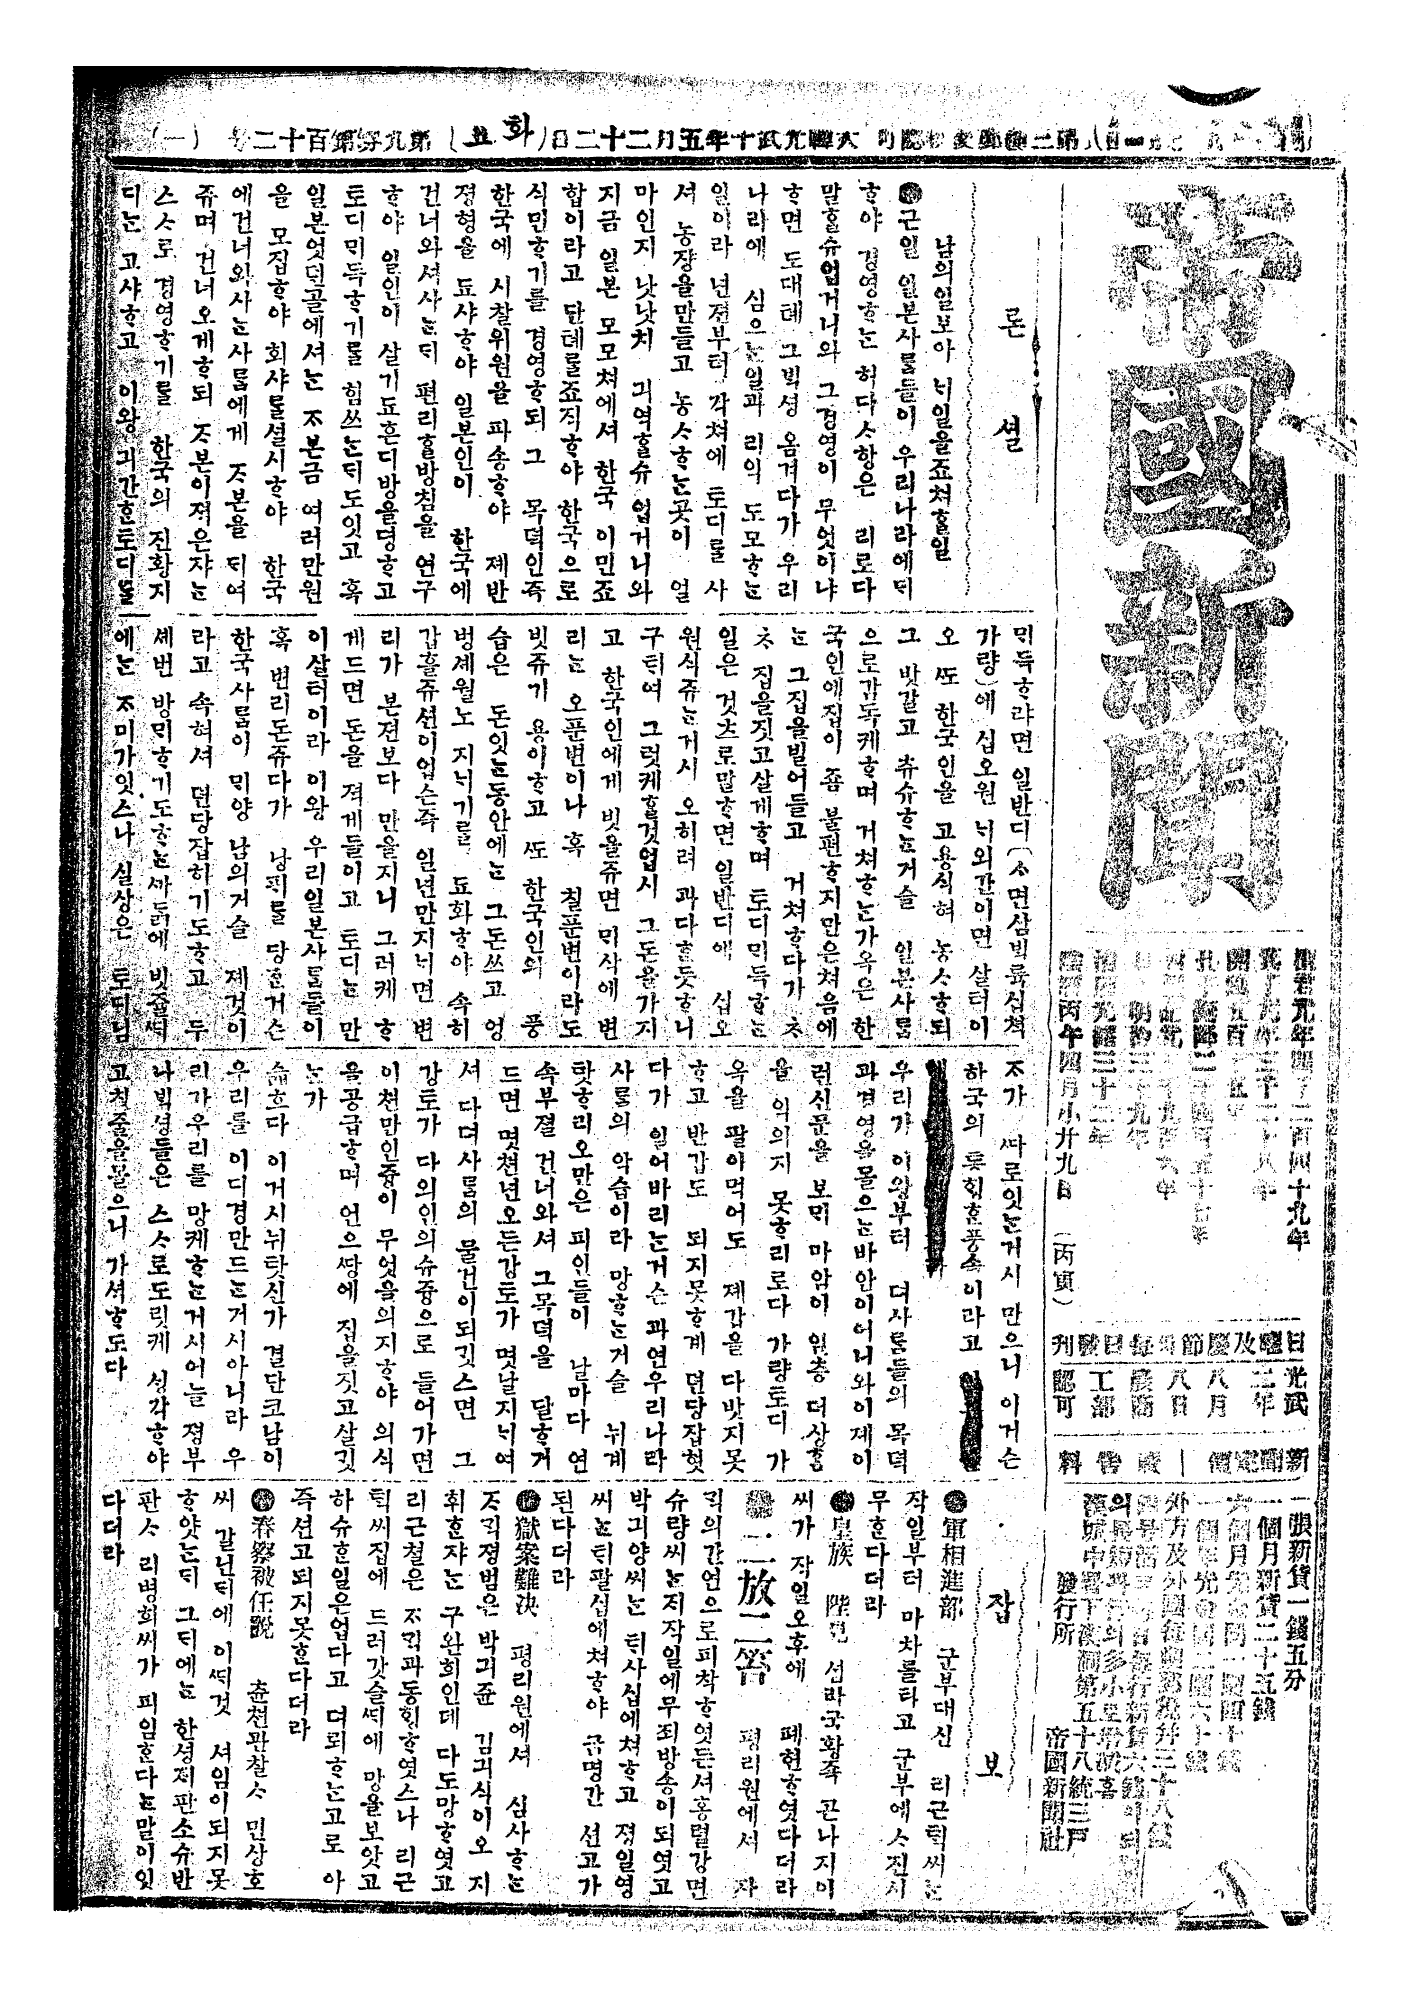 帝國新聞
大韓光武十年五月二十二日 (화요)
(一)
론셜
남의일보아 ᄂᆡ일을죠쳐ᄒᆞᆯ일
●근일 일본사ᄅᆞᆷ들이 우리나라에ᄃᆡ
ᄒᆞ야 경영ᄒᆞᄂᆞᆫ 허다ᄉᆞ항은 리로다
말ᄒᆞᆯ슈업거니와 그경영이 무엇이냐
ᄒᆞ면 도대톄 그ᄇᆡᆨ셩 옴겨다가 우리
나라에 심으ᄂᆞᆫ일과 리익 도모ᄒᆞᄂᆞᆫ
일이라 년젼부터 각쳐에 토디ᄅᆞᆯ 사
셔 농쟝을만들고 농ᄉᆞᄒᆞᄂᆞᆫ곳이 얼
마인지 낫낫치 긔역ᄒᆞᆯ슈 업거니와
지금 일본 모모쳐에셔 한국 이민죠
합이라고 단톄를죠직ᄒᆞ야 한국으로
식민ᄒᆞ기를 경영ᄒᆞ되 그 목뎍인즉
한국에 시찰위원을 파송ᄒᆞ야 졔반
졍형을 됴사ᄒᆞ야 일본인이 한국에
건너와셔사ᄂᆞᆫᄃᆡ 편리ᄒᆞᆯ방침을 연구
ᄒᆞ야 일인이 살기됴흔디방을뎡ᄒᆞ고
토디ᄆᆡ득ᄒᆞ기를 힘쓰ᄂᆞᆫᄃᆡ도잇고 혹
일본엇던골에셔ᄂᆞᆫ ᄌᆞ본금 여러만원
을 모집ᄒᆞ야 회샤를셜시ᄒᆞ야 한국
에건너와사ᄂᆞᆫ사ᄅᆞᆷ에게 ᄌᆞ본을 ᄃᆡ여
쥬며 건너오게ᄒᆞ되 ᄌᆞ본이젹은쟈ᄂᆞᆫ
스ᄉᆞ로 경영ᄒᆞ기를 한국의 진황지
디ᄂᆞᆫ 고샤ᄒᆞ고 이왕 긔간ᄒᆞᆫ토디ᄅᆞᆯ
ᄆᆡ득ᄒᆞ랴면 일반디(ᄉᆞ면삼ᄇᆡᆨ륙십쳑
가량)에 십오원 ᄂᆡ외간이면 살터이
오 ᄯᅩ 한국인을 고용식혀 농ᄉᆞᄒᆞ되
그 밧갈고 츄슈ᄒᆞᄂᆞᆫ거슬 일본사ᄅᆞᆷ
으로감독케ᄒᆞ며 거쳐ᄒᆞᄂᆞᆫ가옥은 한
국인에집이 죰 불편ᄒᆞ지만은쳐음에
ᄂᆞᆫ 그집을빌어들고 거쳐ᄒᆞ다가 ᄎᆞ
ᄎᆞ 집을짓고살게ᄒᆞ며 토디ᄆᆡ득ᄒᆞᄂᆞᆫ
일은 것츠로말ᄒᆞ면 일반디에 십오
원식쥬ᄂᆞᆫ거시 오히려 과다ᄒᆞᆫ듯ᄒᆞ니
구ᄐᆡ여 그럿케ᄒᆞᆯ것업시 그돈을가지
고 한국인에게 빗을쥬면 ᄆᆡ삭에 변
리ᄂᆞᆫ 오푼변이나 혹 칠푼변이라도
빗쥬기 용이ᄒᆞ고 ᄯᅩ 한국인의 풍
습은 돈잇ᄂᆞᆫ동안에ᄂᆞᆫ 그돈쓰고 엉
벙셰월노 지ᄂᆡ기를 됴화ᄒᆞ야 속히
갑흘쥬션이업슨즉 일년만지ᄂᆡ면 변
리가 본젼보다 만을지니 그러케 ᄒᆞ
게드면 돈을 젹게들이고 토디ᄂᆞᆫ 만
이살터이라 이왕 우리일본사ᄅᆞᆷ들이
혹 변리돈쥬다가 낭ᄑᆡ를 당ᄒᆞᆫ거슨
한국사ᄅᆞᆷ이 ᄆᆡ양 남의거슬 졔것이
라고 속혀셔 뎐당잡히기도ᄒᆞ고 두
셰번 방ᄆᆡᄒᆞ기도ᄒᆞᄂᆞᆫᄭᆞᄃᆞᆰ에 빗쥴ᄯᅢ
에ᄂᆞᆫ ᄌᆞ미가잇스나 실상은 토디님
ᄌᆞ가 ᄯᅡ로잇ᄂᆞᆫ거시 만으니 이거슨
한국의 특별ᄒᆞᆫ풍속이라고
우리가 이왕부터 뎌사ᄅᆞᆷ들의 목뎍
과경영을몰으ᄂᆞᆫ바안이어니와이졔이
런신문을 보ᄆᆡ 마암이 일층 더상홈
을 익의지 못ᄒᆞ리로다 가량토디 가
옥을 팔아먹어도 졔갑을 다밧지못
ᄒᆞ고 반갑도 되지못ᄒᆞ계 뎐당잡혓
다가 일어바리ᄂᆞᆫ거슨 과연우리나라
사ᄅᆞᆷ의 악습이라 망ᄒᆞᄂᆞᆫ거슬 뉘게
탓ᄒᆞ리오만은 뎌인들이 날마다 연
속부졀 건너와셔 그목뎍을 달ᄒᆞ거
드면 몃쳔년오든강토가 몃날지ᄂᆡ여
셔 다뎌사ᄅᆞᆷ의 물건이되깃스면 그
강토가 다외인의슈즁으로 들어가면
이쳔만인즁이 무엇을의지ᄒᆞ야 의식
을공급ᄒᆞ며 언으ᄯᅡᆼ에 집을짓고살깃
ᄂᆞᆫ가
슬흐다 이거시뉘탓신가 결단코남이
우리를 이디경만드ᄂᆞᆫ거시아니라 우
리가우리를 망케ᄒᆞᄂᆞᆫ거시어늘 졍부
나ᄇᆡᆨ셩들은 스ᄉᆞ로도릿케 ᄉᆡᆼ각ᄒᆞ야
고쳐줄을몰으니 가셕ᄒᆞ도다
잡보
●軍相進部 군부대신 리근ᄐᆡᆨ씨ᄂᆞᆫ
작일부터 마차를타고 군부에ᄉᆞ진시
무ᄒᆞᆫ다더라
●皇族陛見 셤라국황죡 곤나지이
씨가 작일오후에 폐현ᄒᆞ엿다더라
●二放二笞 평리원에셔 자
ᄀᆡᆨ의간연으로피착ᄒᆞ엿든셔홍렬강면
슈량씨ᄂᆞᆫᄌᆡ작일에무죄방송이되엿고
박긔양씨ᄂᆞᆫ ᄐᆡ사십에쳐ᄒᆞ고 졍일영
씨ᄂᆞᆫᄐᆡ팔십에쳐ᄒᆞ야 금명간 션고가
된다더라
●獄案難決 평리원에셔 심사ᄒᆞᄂᆞᆫ
ᄌᆞᄀᆡᆨ졍범은 박긔쥰 김긔식이오 지
휘ᄒᆞᆫ쟈ᄂᆞᆫ 구완희인데 다도망ᄒᆞ엿고
리근철은 ᄌᆞᄀᆡᆨ과동ᄒᆡᆼᄒᆞ엿스나 리근
ᄐᆡᆨ씨집에 드러갓슬ᄯᅢ에 망을보앗고
하슈ᄒᆞᆫ일은업다고 뎌뢰ᄒᆞᄂᆞᆫ고로 아
즉션고되지못ᄒᆞᆫ다더라
●春察被任說 츈쳔관찰ᄉᆞ 민상호
씨 갈닌ᄃᆡ에 이ᄯᅢ것 셔임이되지못
ᄒᆞ얏ᄂᆞᆫᄃᆡ 그ᄃᆡ에ᄂᆞᆫ 한셩ᄌᆡ판소슈반
판ᄉᆞ 리병희씨가 피임ᄒᆞᆫ다ᄂᆞᆫ말이잇
다더라
丙午四月小廿九日 (丙寅)
光武二年八月八日農商工部認可
新聞定價
一張新貨一錢五分
一個月新貨二十五錢
發行所
漢城中署下漢洞第五十八統三戶
帝國新聞社